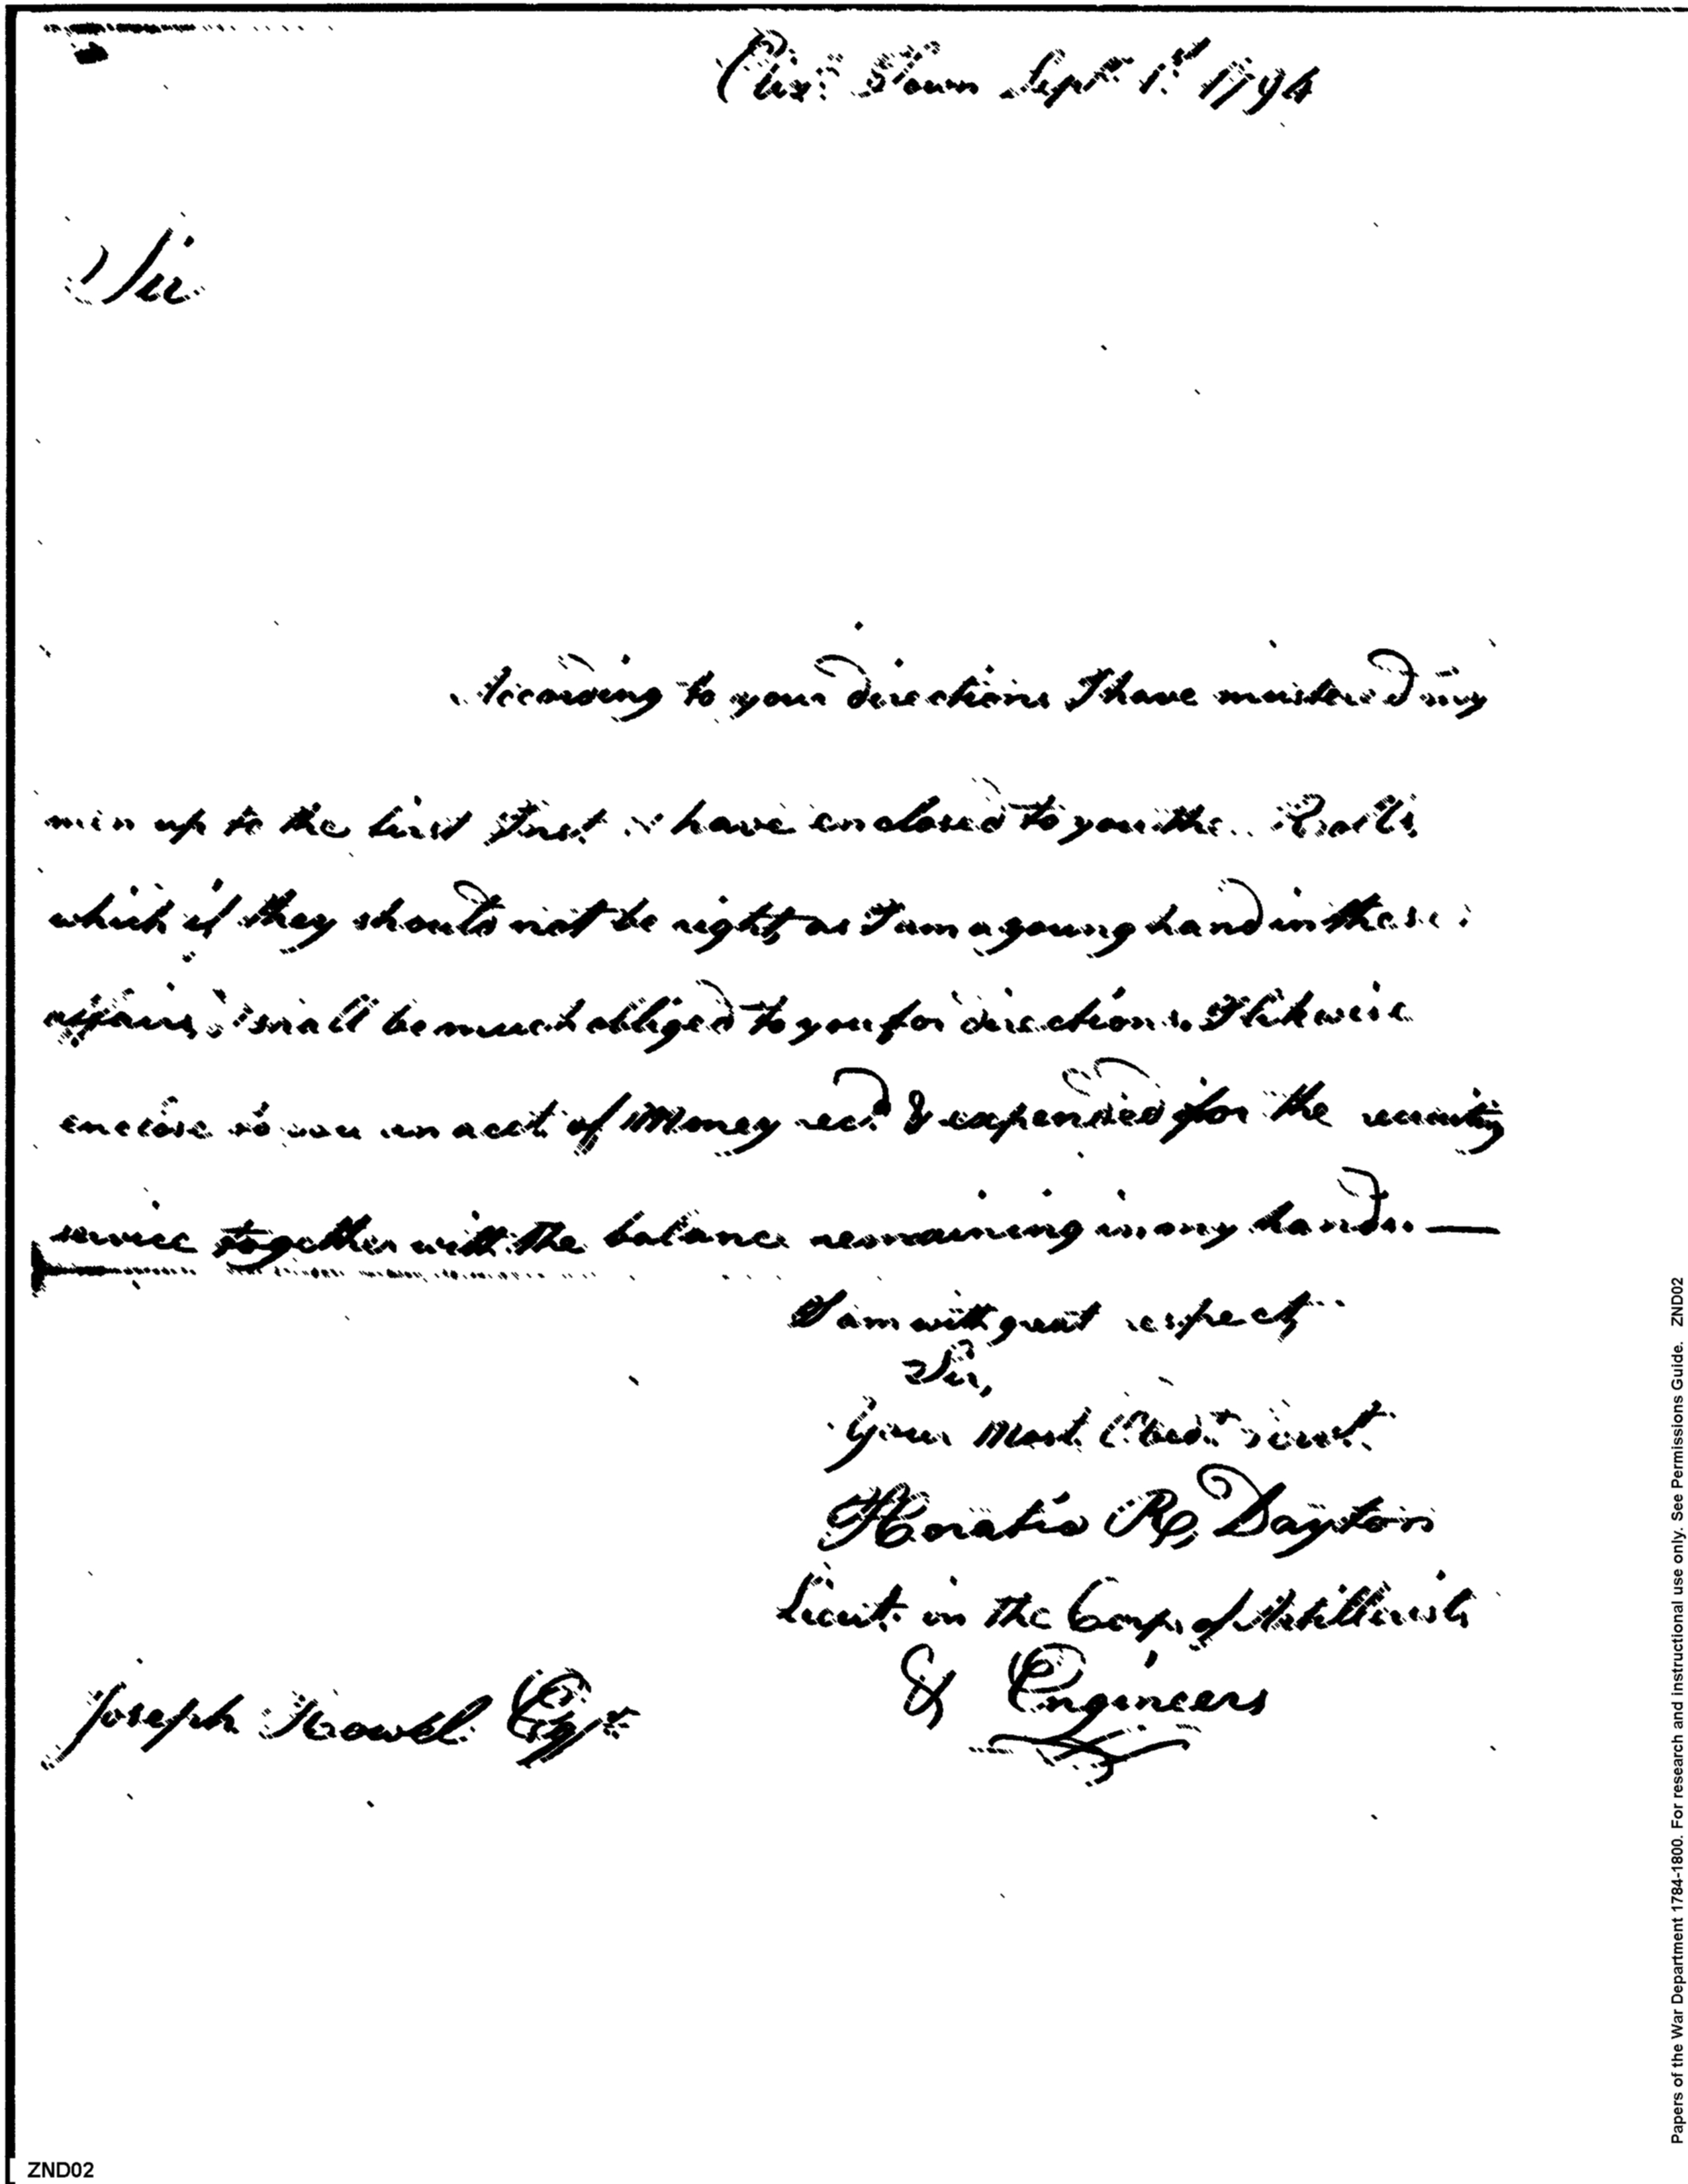 Eliz: Town Sept. 1st 1794
Sir
According to your directions I have mustered my
men up to the first Inst. & have enclosed to you the Rolls
which if they should not be right, as I am a young hand in these
affairs, I shall be much obliged to you for directions. I likewise
enclose to you an acct. of Money recd. & expended for the recruiting
service together with the balance remaining in my hands. —
I am with great respect,
Sir,
Your Most Obedt. servt.
Horatio R. Dayton
Lieut. in the Corps of Artillerists
& Engineers
Joseph Howel Esqr.
ZND02
Papers of the War Department 1784-1800. For research and instructional use only. See Permissions Guide. ZND02